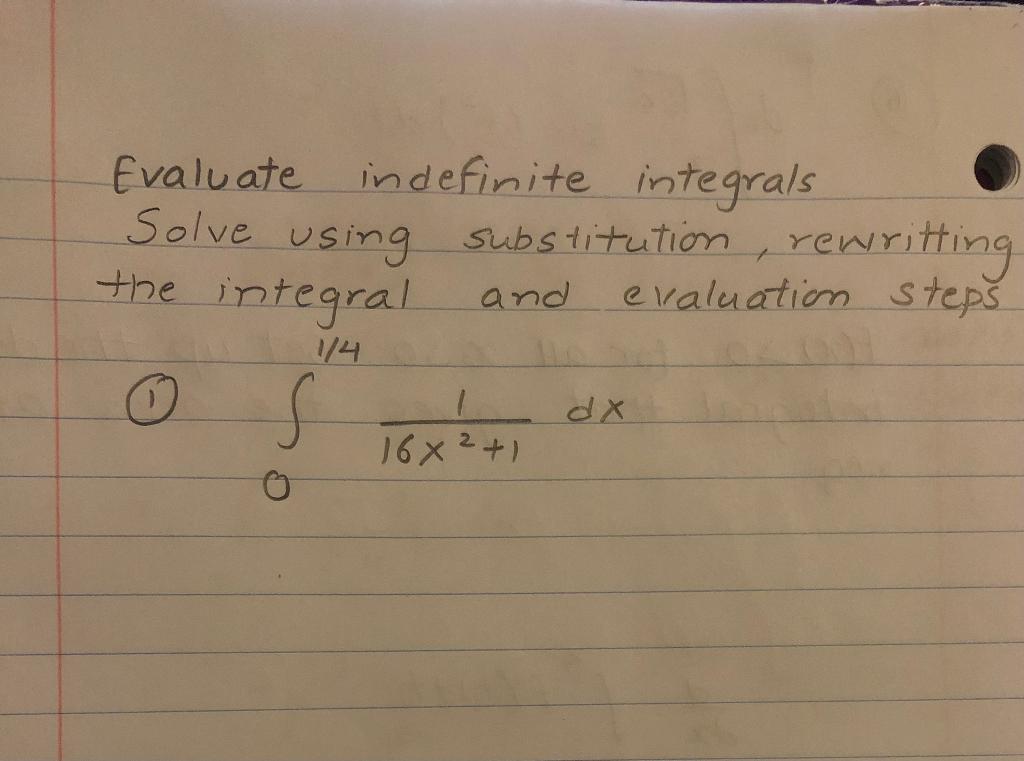 Evaluate indefinite integrals
Solve using substitution, rewritting
the integral and evaluation steps
1/4
① ∫ 1/(16x²+1) dx
0